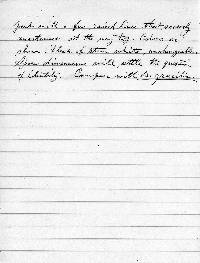 just with a few raised lines that scarcely
anastomose at the very top. Colors as
shown. Think of stem white, unchangeable.
Spore dimensions will settle the question
of identity. Compare with B. gracilis.